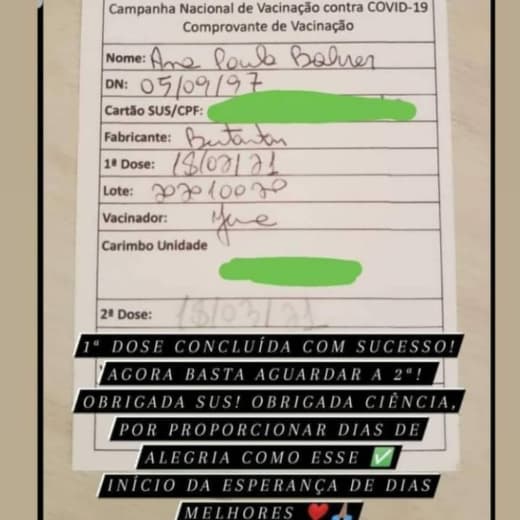 Campanha Nacional de Vacinação contra COVID-19
Comprovante de Vacinação
Nome: Ana Paula
DN: 05/09/97
Cartão SUS/CPF:
Fabricante: Butantan
1ª Dose: 18/02/21
Lote:
Vacinador:
Carimbo Unidade
2ª Dose: 18/03/21
1ª DOSE CONCLUÍDA COM SUCESSO!
AGORA BASTA AGUARDAR A 2ª!
OBRIGADA SUS! OBRIGADA CIÊNCIA,
POR PROPORCIONAR DIAS DE
ALEGRIA COMO ESSE ✅
INÍCIO DA ESPERANÇA DE DIAS
MELHORES ❤️🙏🏽